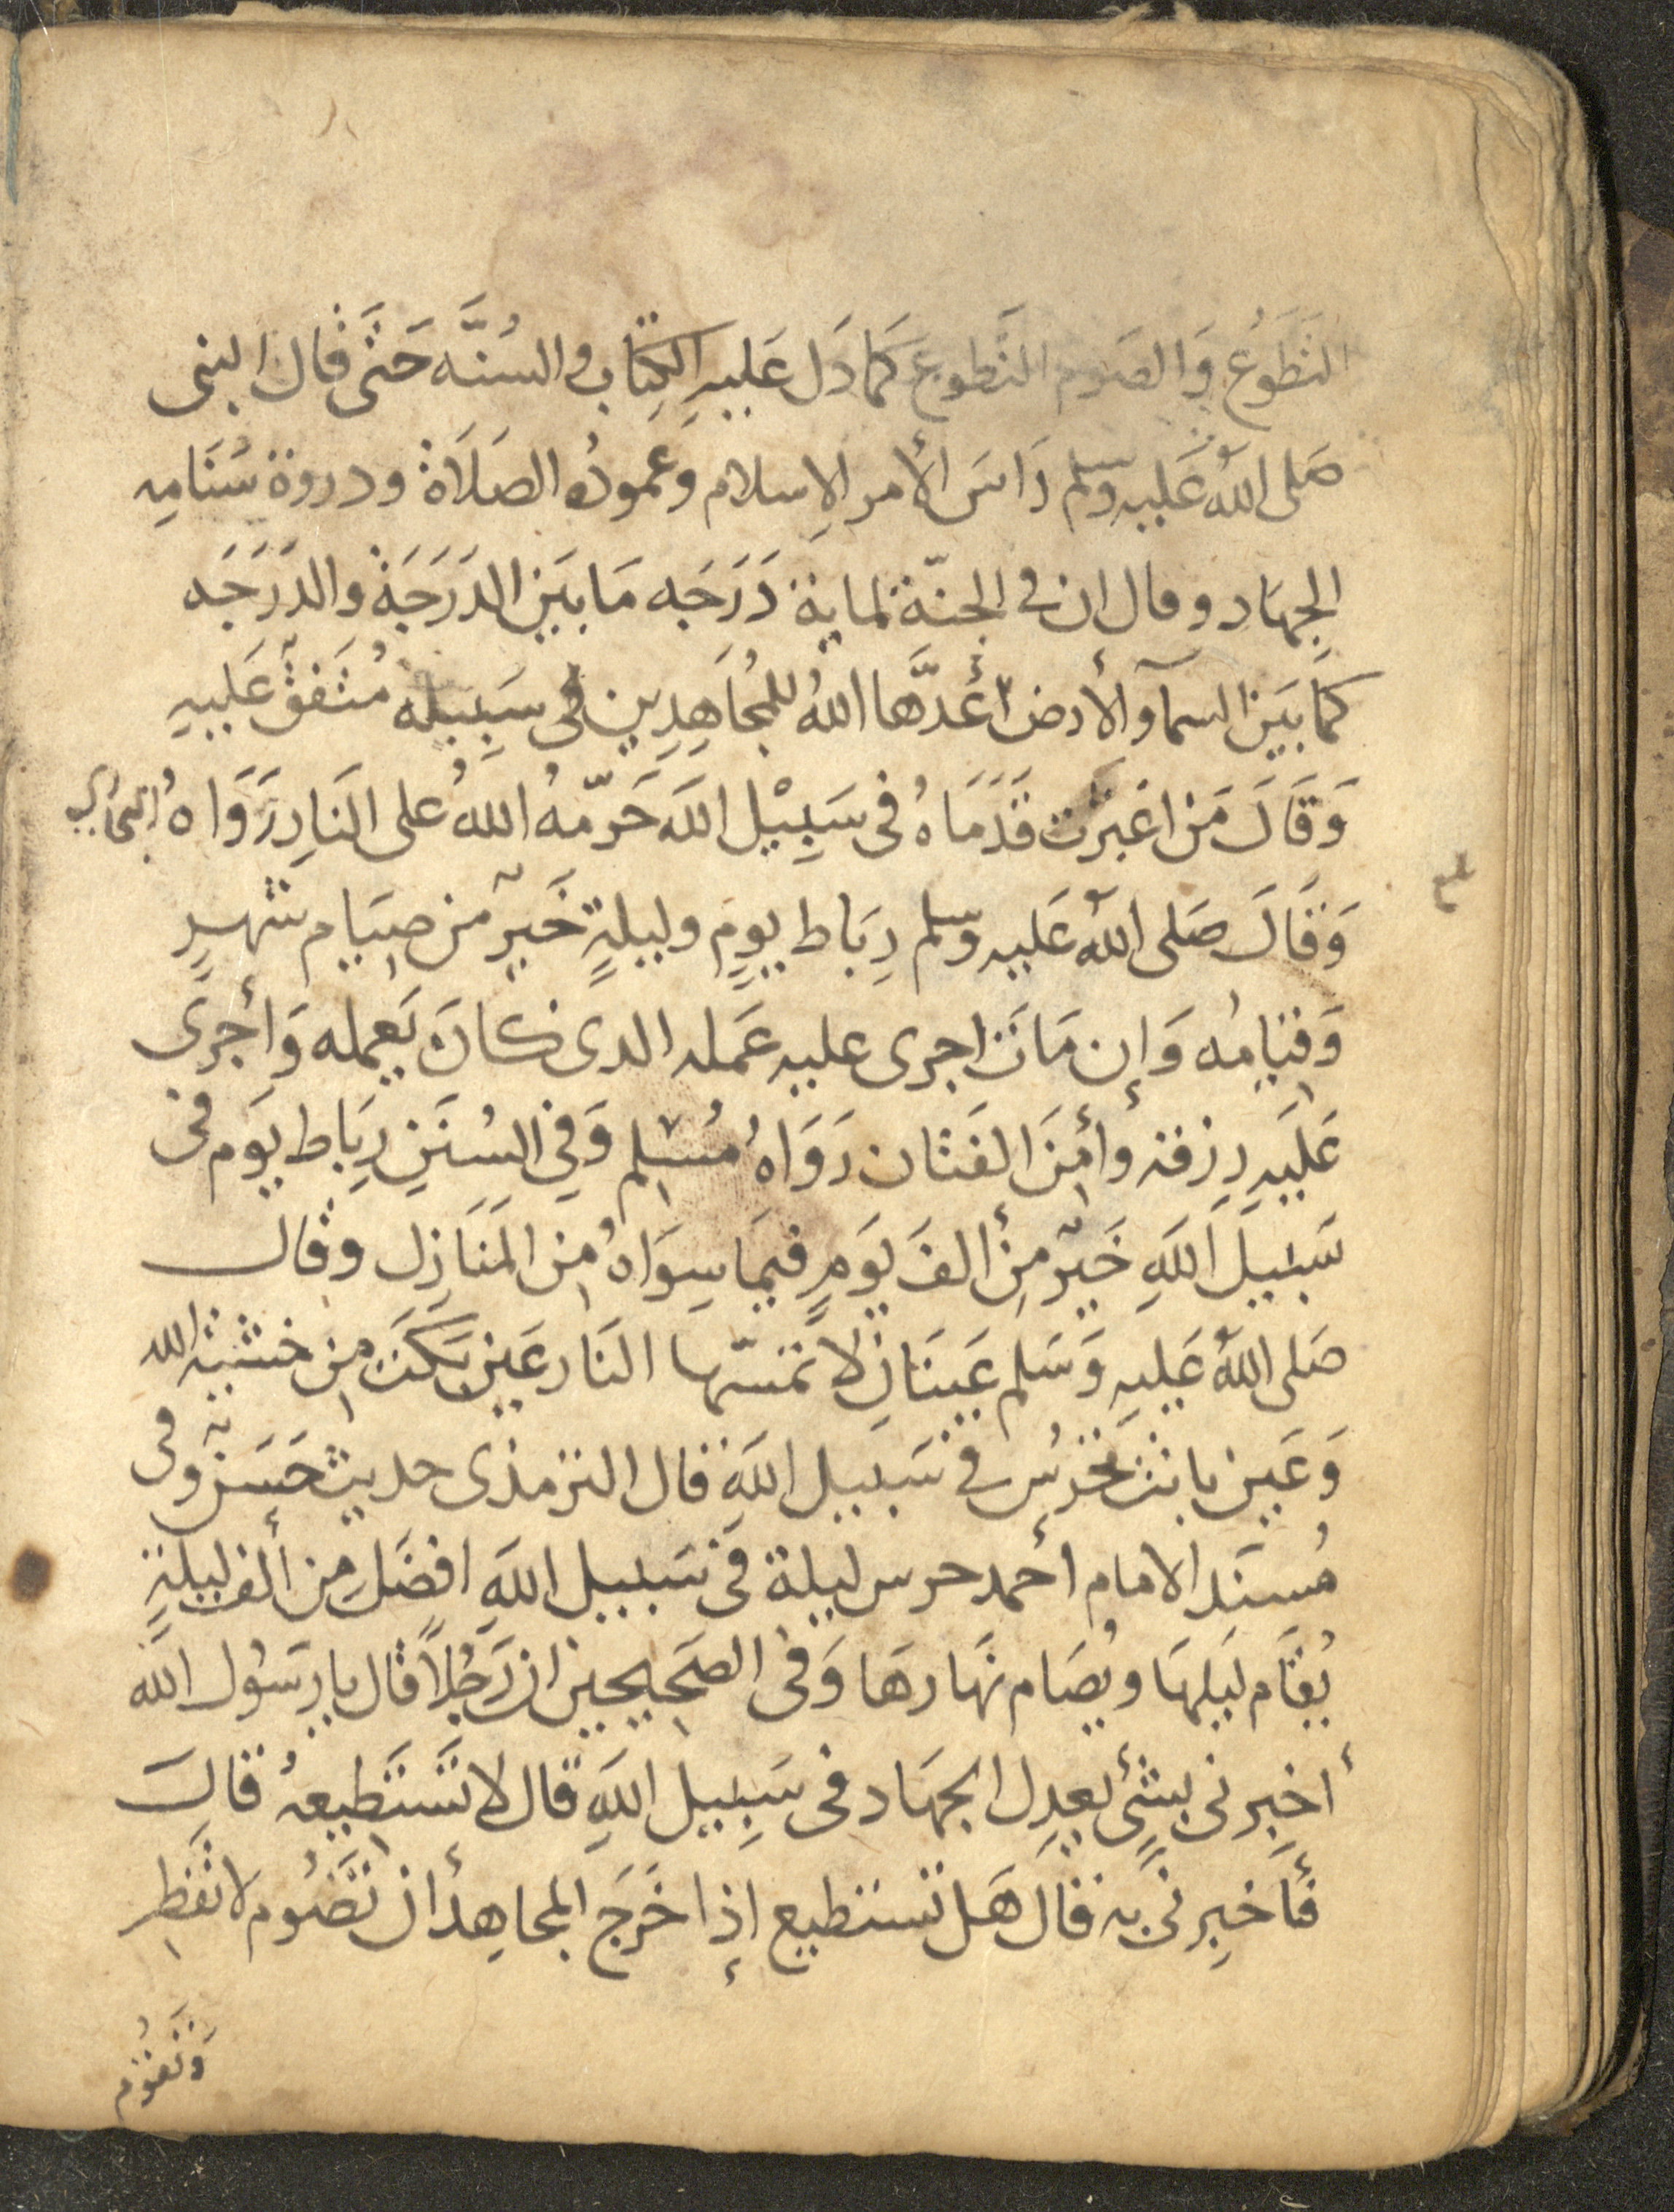 التَطَوُع وَالصَوم التَّطوع كَمَا دَل عَليهِ الكِتَاب والسُنَّه حَتَى قَال النبى
صَلى اللهُ عَليه وسلم رَاسَ الأمر الإسلام وَعمودُه الصَلَاة ودروة سَنَامِه
الجِهَاد وقال ان فى الجنّة لماية دَرَجَه مَا بَين الدَرَجَة والدَرَجَه
كمَا بَين السمآ والأرض أعَدَّها اللهُ للمُجَاهِدِين فى سَبِيله مُتَفقٌ عَليهِ
وَقَالَ مَن اغبَرّت قَدَمَاهُ فى سَبِيْل اللهِ حَرّمَهُ اللهُ على النَارِ رَوَاهُ البخارى
وَقَالَ صَلى اللهُ عَليه وسلم رِبَاط يومٍ وليلةٍ خَيرٌ من صِيَام شهرٍ
وَقِيَامِه وَإن مَاتَ اجرى عليه عَمله الدى كانَ يَعمله وَأجرى
عَلَيهِ رِزقه وأمِنَ الفَتان رَوَاهُ مُسلم وَفِي السُنَنِ رِبَاط يَوم فى
سَبيل اللهِ خَيرٌ مِن ألفَ يَومٍ فيمَا سِوَاهُ مِن المَنَازِل وقال
صَلى اللهُ عَليهِ وَسَلم عَينَانِ لا تمسّها النَار عَين بَكَت مِن خشية الله
وَعَين باتت تحَرُس فى سَبيل اللهِ قال الترمذى حديث حَسَنٌ وفى
مُسنَدِ الامام أحمد حرس ليلة فى سَبيل اللهِ افضَل مِن ألف ليلةٍ
يُقَام لَيلهَا ويُصَام نَهَارهَا وَفى الصَحِيحين ان رَجُلاً قال يا رسَوُل الله
أخبرنى بشئ يعدِل الجهَاد فى سَبِيل اللهِ قال لا تَستَطيعهُ قالَ
فَأخبِرنى به قالَ هَل تستطيع إذا خَرَجَ المجاهِد أن تَصُوم لا تفطِر
وَتقوُم